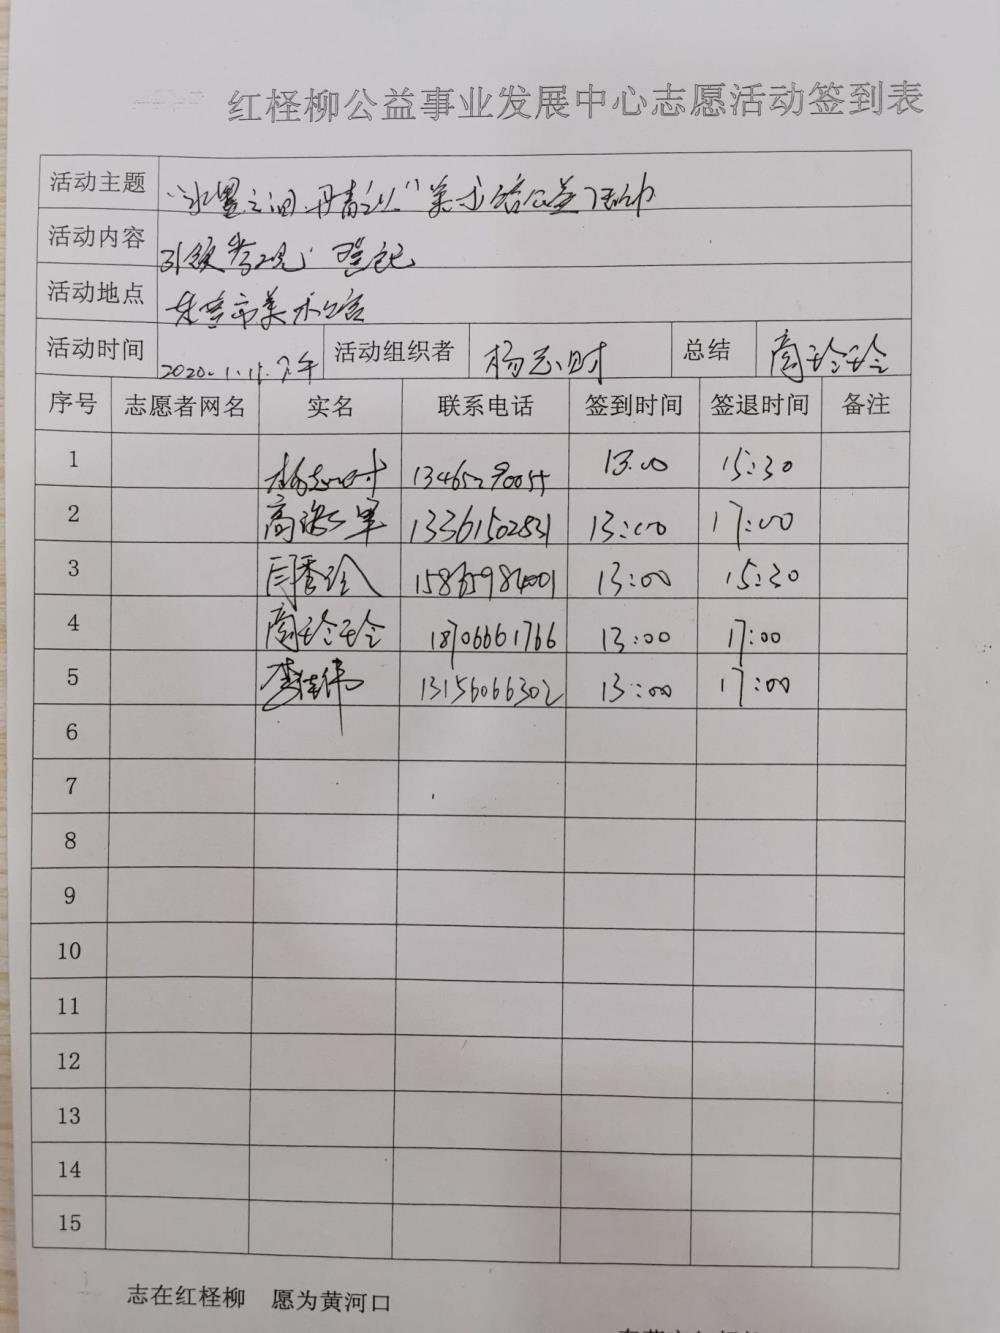 红柽柳公益事业发展中心志愿活动签到表
活动主题 "水墨之间 丹青 美术 公益活动
活动内容 引领参观 登记
活动地点 东营市美术馆
活动时间 2020.1.15.下午 活动组织者 杨志时 总结 商玲玲
序号 志愿者网名 实名 联系电话 签到时间 签退时间 备注
1 杨志时 13465290055 13:00 15:30
2 高 军 13361502831 13:00 17:00
3 闫秀玲 13:00 15:30
4 商玲玲 18706661766 13:00 17:00
5 李佳伟 13156066302 13:00 17:00
6
7
8
9
10
11
12
13
14
15
志在红柽柳 愿为黄河口